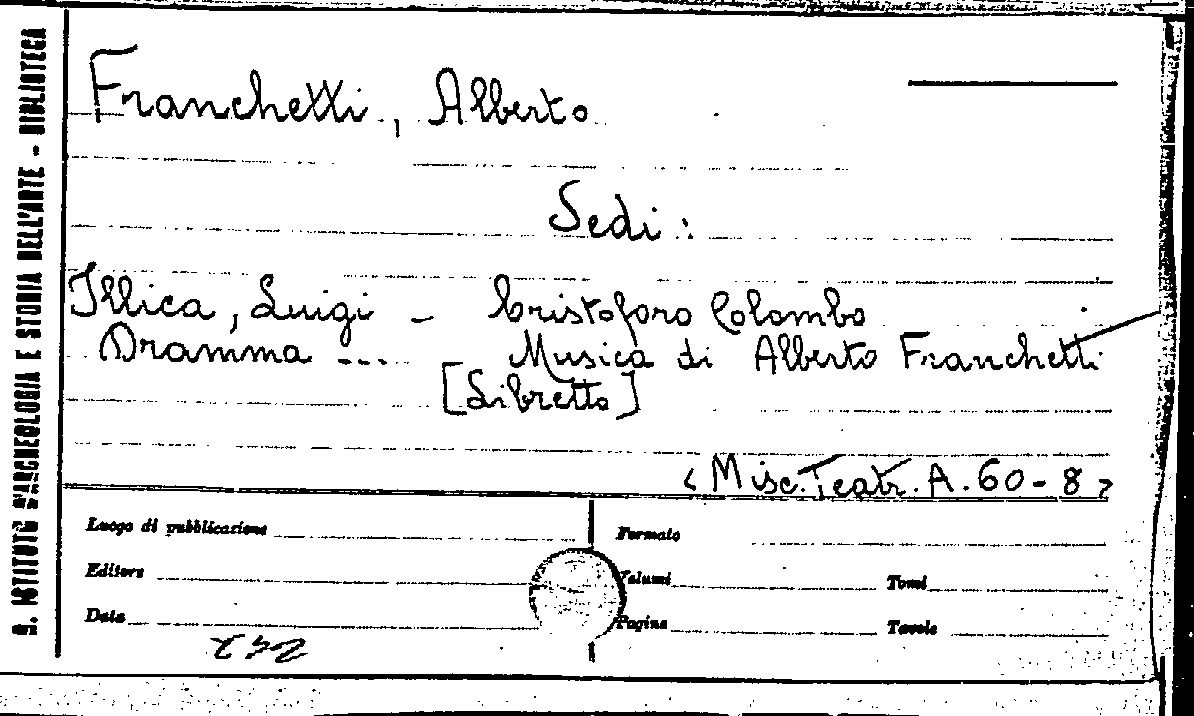 R. ISTITUTO D'ARCHEOLOGIA E STORIA DELL'ARTE - BIBLIOTECA
Franchetti, Alberto
Sedi:
Illica, Luigi - Cristoforo Colombo
Dramma --- Musica di Alberto Franchetti
[Libretto]
<Misc. Teatr. A. 60-8>
Luogo di pubblicazione
Formato
Editore
Volumi
Tomi
Data
Pagine
Tavole